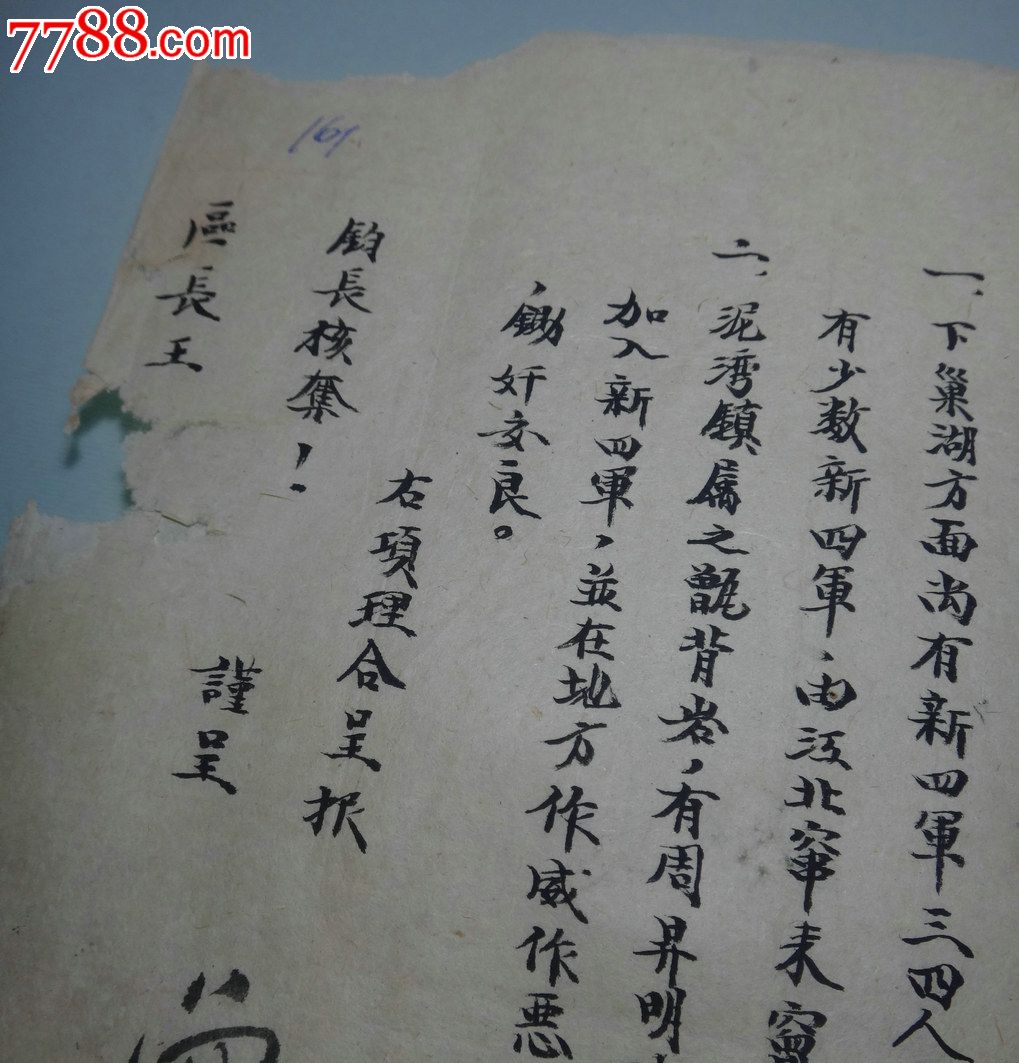 7788.com
161
一、下巢湖方面尚有新四軍三四人
有少数新四軍，由江北窜来
二、泥湾鎮属之甑背岩，有周昇明
加入新四軍，並在地方作威作悪
鋤奸安良。
右項理合呈报
鈞長核奪！
謹呈
區長王